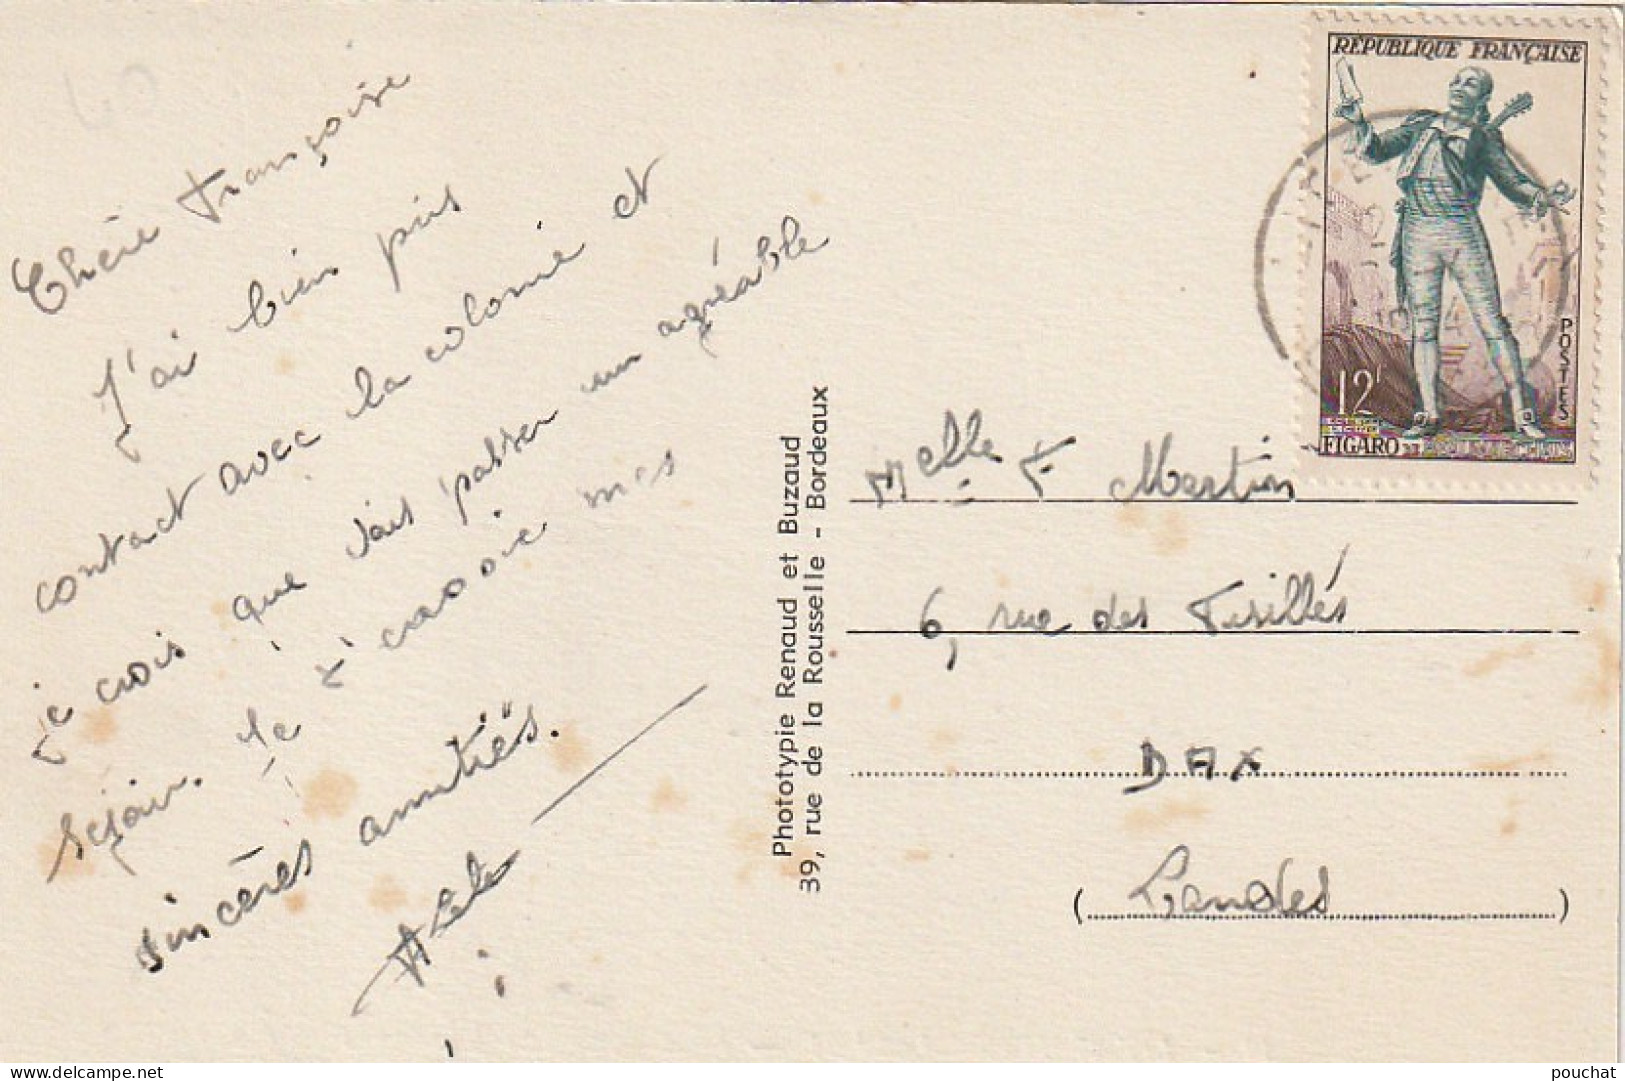 40
Chère Françoise
J'ai bien pris
contact avec la colonie et
je crois que vais passer un agréable
sejour. Je t'envoie mes
sincères amitiés.
Phototypie Renaud et Buzaud
39, rue de la Rousselle - Bordeaux
RÉPUBLIQUE FRANÇAISE
POSTES
12F
FIGARO DE BEAUMARCHAIS
Melle F Martin
6, rue des Fusillés
DAX
(Landes)
delcampe.net
pouchat